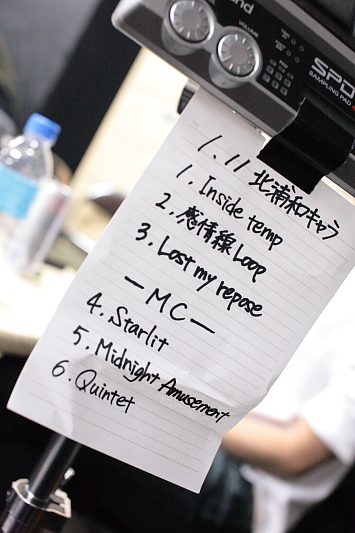 VOLUME
SPD
SAMPLING PAD
1.11 北浦和キャラ
1. Inside temp
2. 感情線 Loop
3. Lost my repose
—MC—
4. Starlit
5. Midnight Amusement
6. Quintet